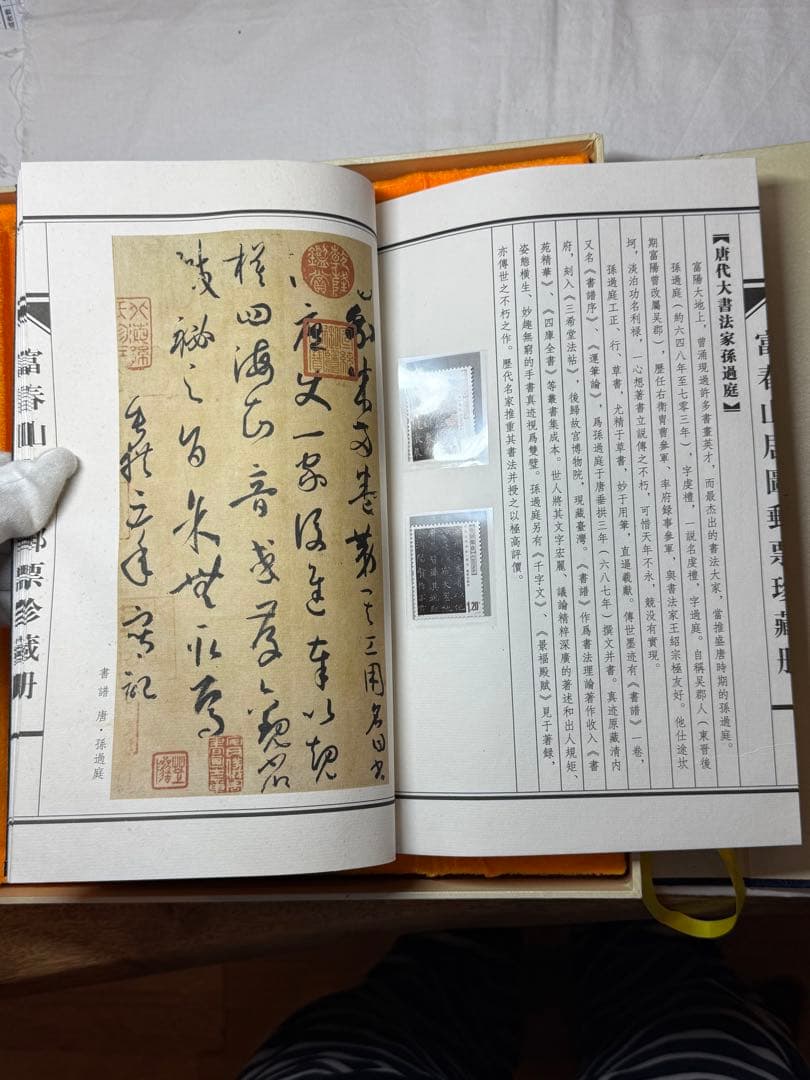 富春山居圖郵票珍藏册
【唐代大書法家孫過庭】
富陽大地上，曾涌現過許多書畫英才，而最杰出的書法大家，當推盛唐時期的孫過庭。
孫過庭（約六四八年至七零三年），字虔禮，一説名虔禮，字過庭。自稱吴郡人（東晉後
期富陽曾改屬吴郡），歷任右衛胄曹參軍、率府録事參軍，與書法家王紹宗極友好。他仕途坎
坷，淡泊功名利禄，一心想著書立説傳之不朽，可惜天年不永，兢没有實現。
孫過庭工正、行、草書，尤精于草書，妙于用筆，直逼羲獻。傳世墨迹有《書譜》一卷，
又名《書譜序》、《運筆論》，爲孫過庭于唐垂拱三年（六八七年）撰文并書。真迹原藏清内
府，刻入《三希堂法帖》，後歸故宫博物院，現藏臺灣。《書譜》作爲書法理論著作收入《書
苑精華》、《四庫全書》等叢書集成本。世人將其文字宏麗、議論精粹深廣的著述和出人規矩、
姿態横生、妙趣無窮的手書真迹視爲雙璧。孫過庭另有《千字文》、《景福殿賦》見于著録，
亦傳世之不朽之作。歷代名家推重其書法并授之以極高評價。
1.20
成兩卷第其工用名曰書
庶使一家後進奉以規
模四海知音或存觀省
緘秘之旨余無取焉
垂拱三年寫記
書譜 唐·孫過庭
富春山
郵票珍藏册